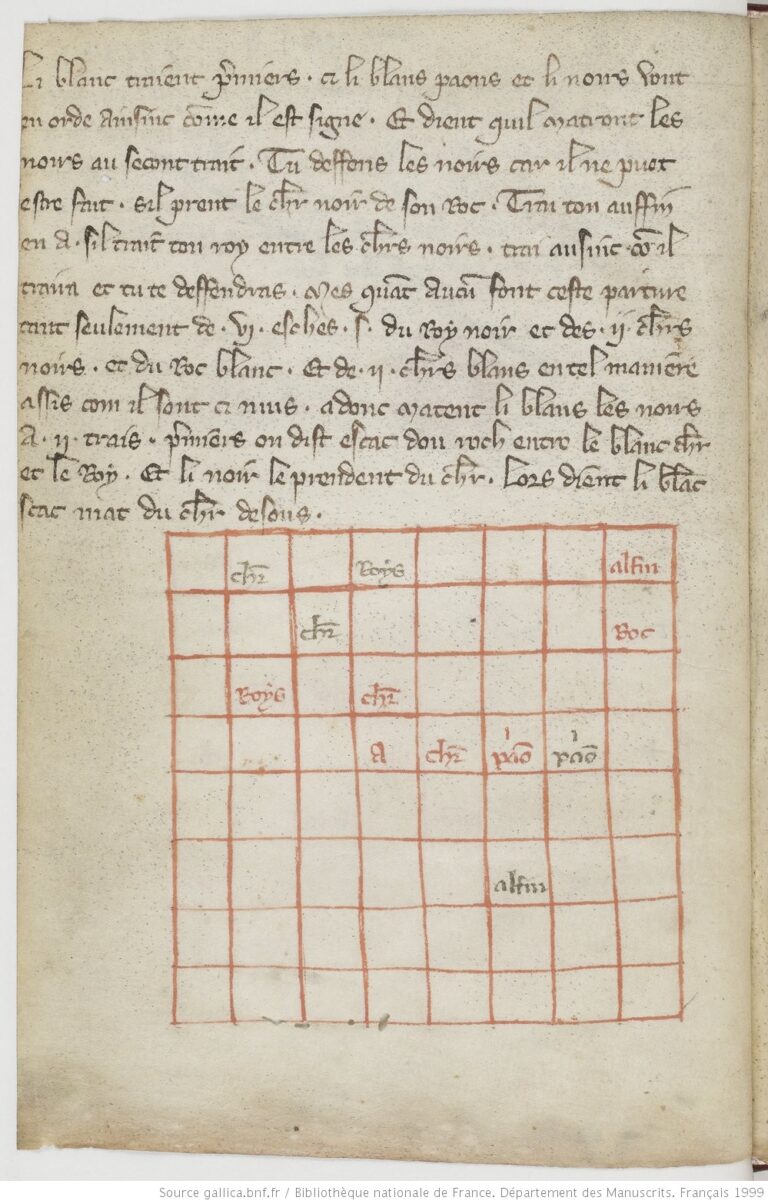 Li blanc traient p̄miers · ci li blans paons et li noirs vont
en orde Ainsinc cōme il est signe · Et dient quil matront les
noirs au second trait · Tu deffens les noirs car il ne puet
estre fait · sil prent le ch̄r noir de son Roc · Trai ton auffin
en A · sil trait ton roy entre les ch̄rs noirs · trai ausinc cō il
traira et tu te deffendras · Mes quāt Aucū font ceste parture
tant seulement de · vi · esches · s · du Roy noir et des · ii · ch̄rs
noirs · et du Roc blanc · Et de · ii · ch̄rs blans en tel maniere
assis com il sont ci mis · adonc matent li blans les noirs
A · ii · trais · p̄miers on dist escac dou roch entre le blanc ch̄r
et le Roy · Et li noir le prendent du ch̄r · Lors dient li blāc
scac mat du ch̄r desous ·
ch̄r Roys alfin
ch̄r Roc
Roys ch̄r
A ch̄r paō paō
alfin
Source gallica.bnf.fr / Bibliothèque nationale de France. Département des Manuscrits. Français 1999